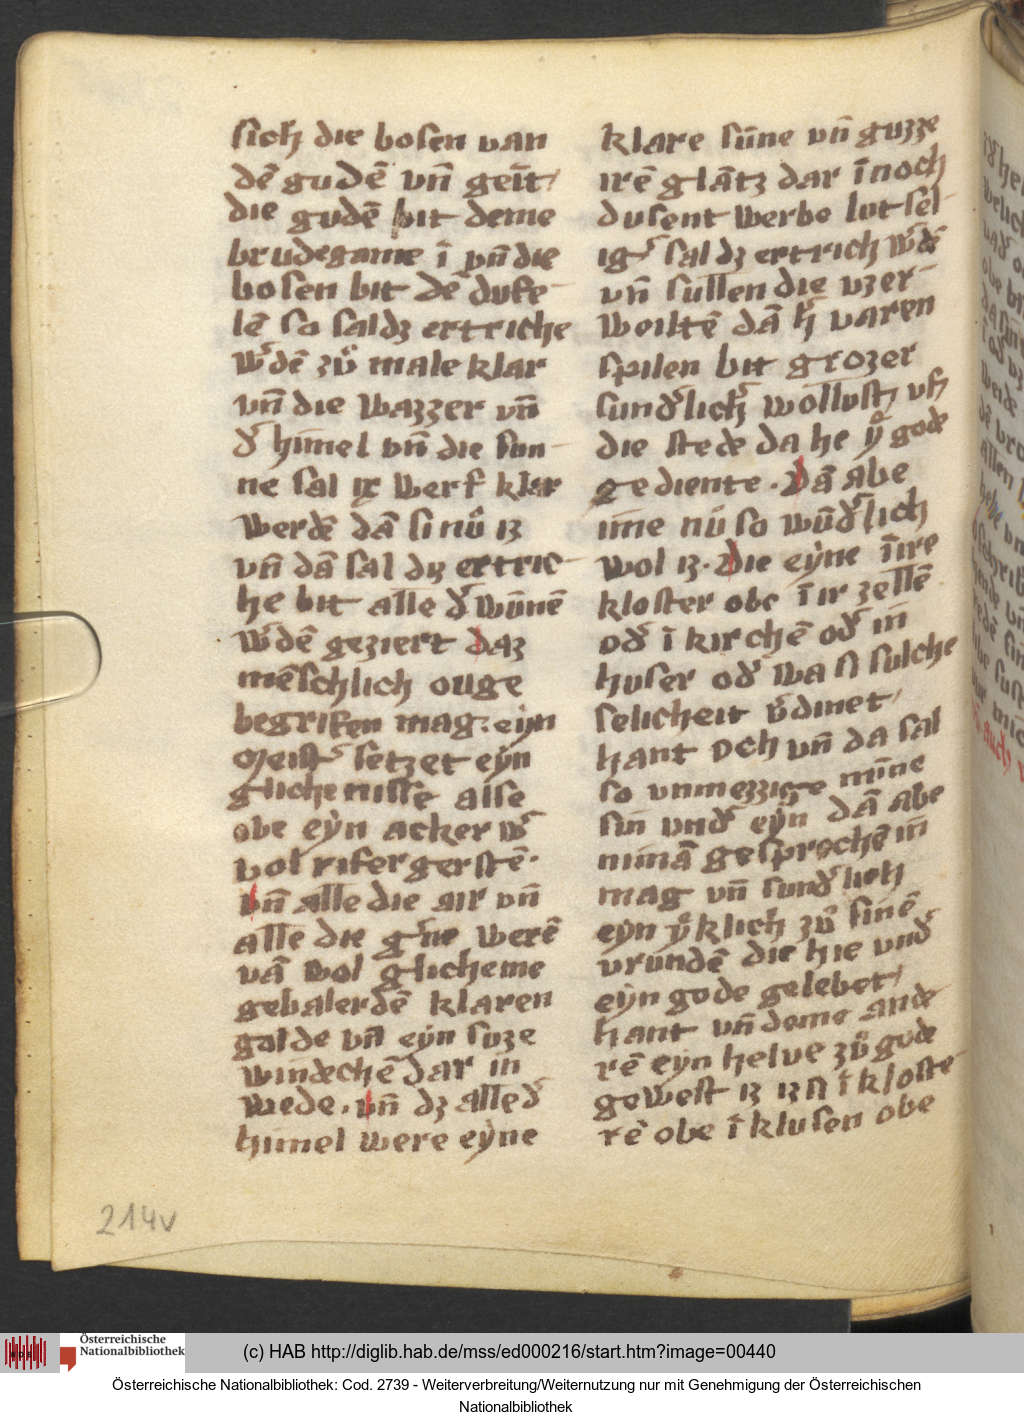 sich die bosen van
dē gudē vn̄ geīt/
die gudē bit deme
brudegame ī vn̄ die
bosen bit dē dufe-
lē so saldz ertriche
wͬdē zuͦ male klar
vn̄ die wazzer vn̄
dͬ himel vn̄ die sun-
ne sal werf klar
werdē dā si nuͦ iz
vn̄ dā sal dz ertric-
he bit alle dͬ wūnē
wͬdē geziert daz
mēschlich ouge
begrifen mag: eẏn
meistͬ setzet eẏn
glichenisse alse
obe eẏn acker wͬ
vol rifer gerstē·
vn̄ alle die air vn̄
alle die gͬne werē
vā wol glicheme
gebalerdē klaren
golde vn̄ eẏn suze
windechē dar in
wede· vn̄ dz alle dͬ
himel were eẏne
klare sūne vn̄ guzze
irē glātz dar ī noch
dusent werbe lutsel-
igͬ sal dz ertrich wͬdē
vn̄ sullen die vzer-
weiltē dā hͬ varen
spilen bit grozer
sundͬlichͬ wollust vf
die stede da he ẏͦ gode
gediente· Dā abe
ime nu so wūdͬlich
wol iz· Die eẏne ī ire
kloster obe ī ir zellē
odͬ ī kirchē odͬ in
huser odͬ wa si sulche
selicheit vͬdinet/
hant och vn̄ da sal
so vnmezzige mīne
sin vndͬ eẏn dā abe
niman gesprochē in
mag vn̄ sundͬlich
eẏn ẏͦklich zuͦ sinē
vrundē die hie vndͬ
eẏn gode gelebet/
hant vn̄ deme ande
rē eẏn helue zuͦ gode
gewest iz iz si ī kloste-
rē obe ī klusen obe
214v
(c) HAB http://diglib.hab.de/mss/ed000216/start.htm?image=00440
Österreichische Nationalbibliothek
Österreichische Nationalbibliothek: Cod. 2739 - Weiterverbreitung/Weiternutzung nur mit Genehmigung der Österreichischen
Nationalbibliothek